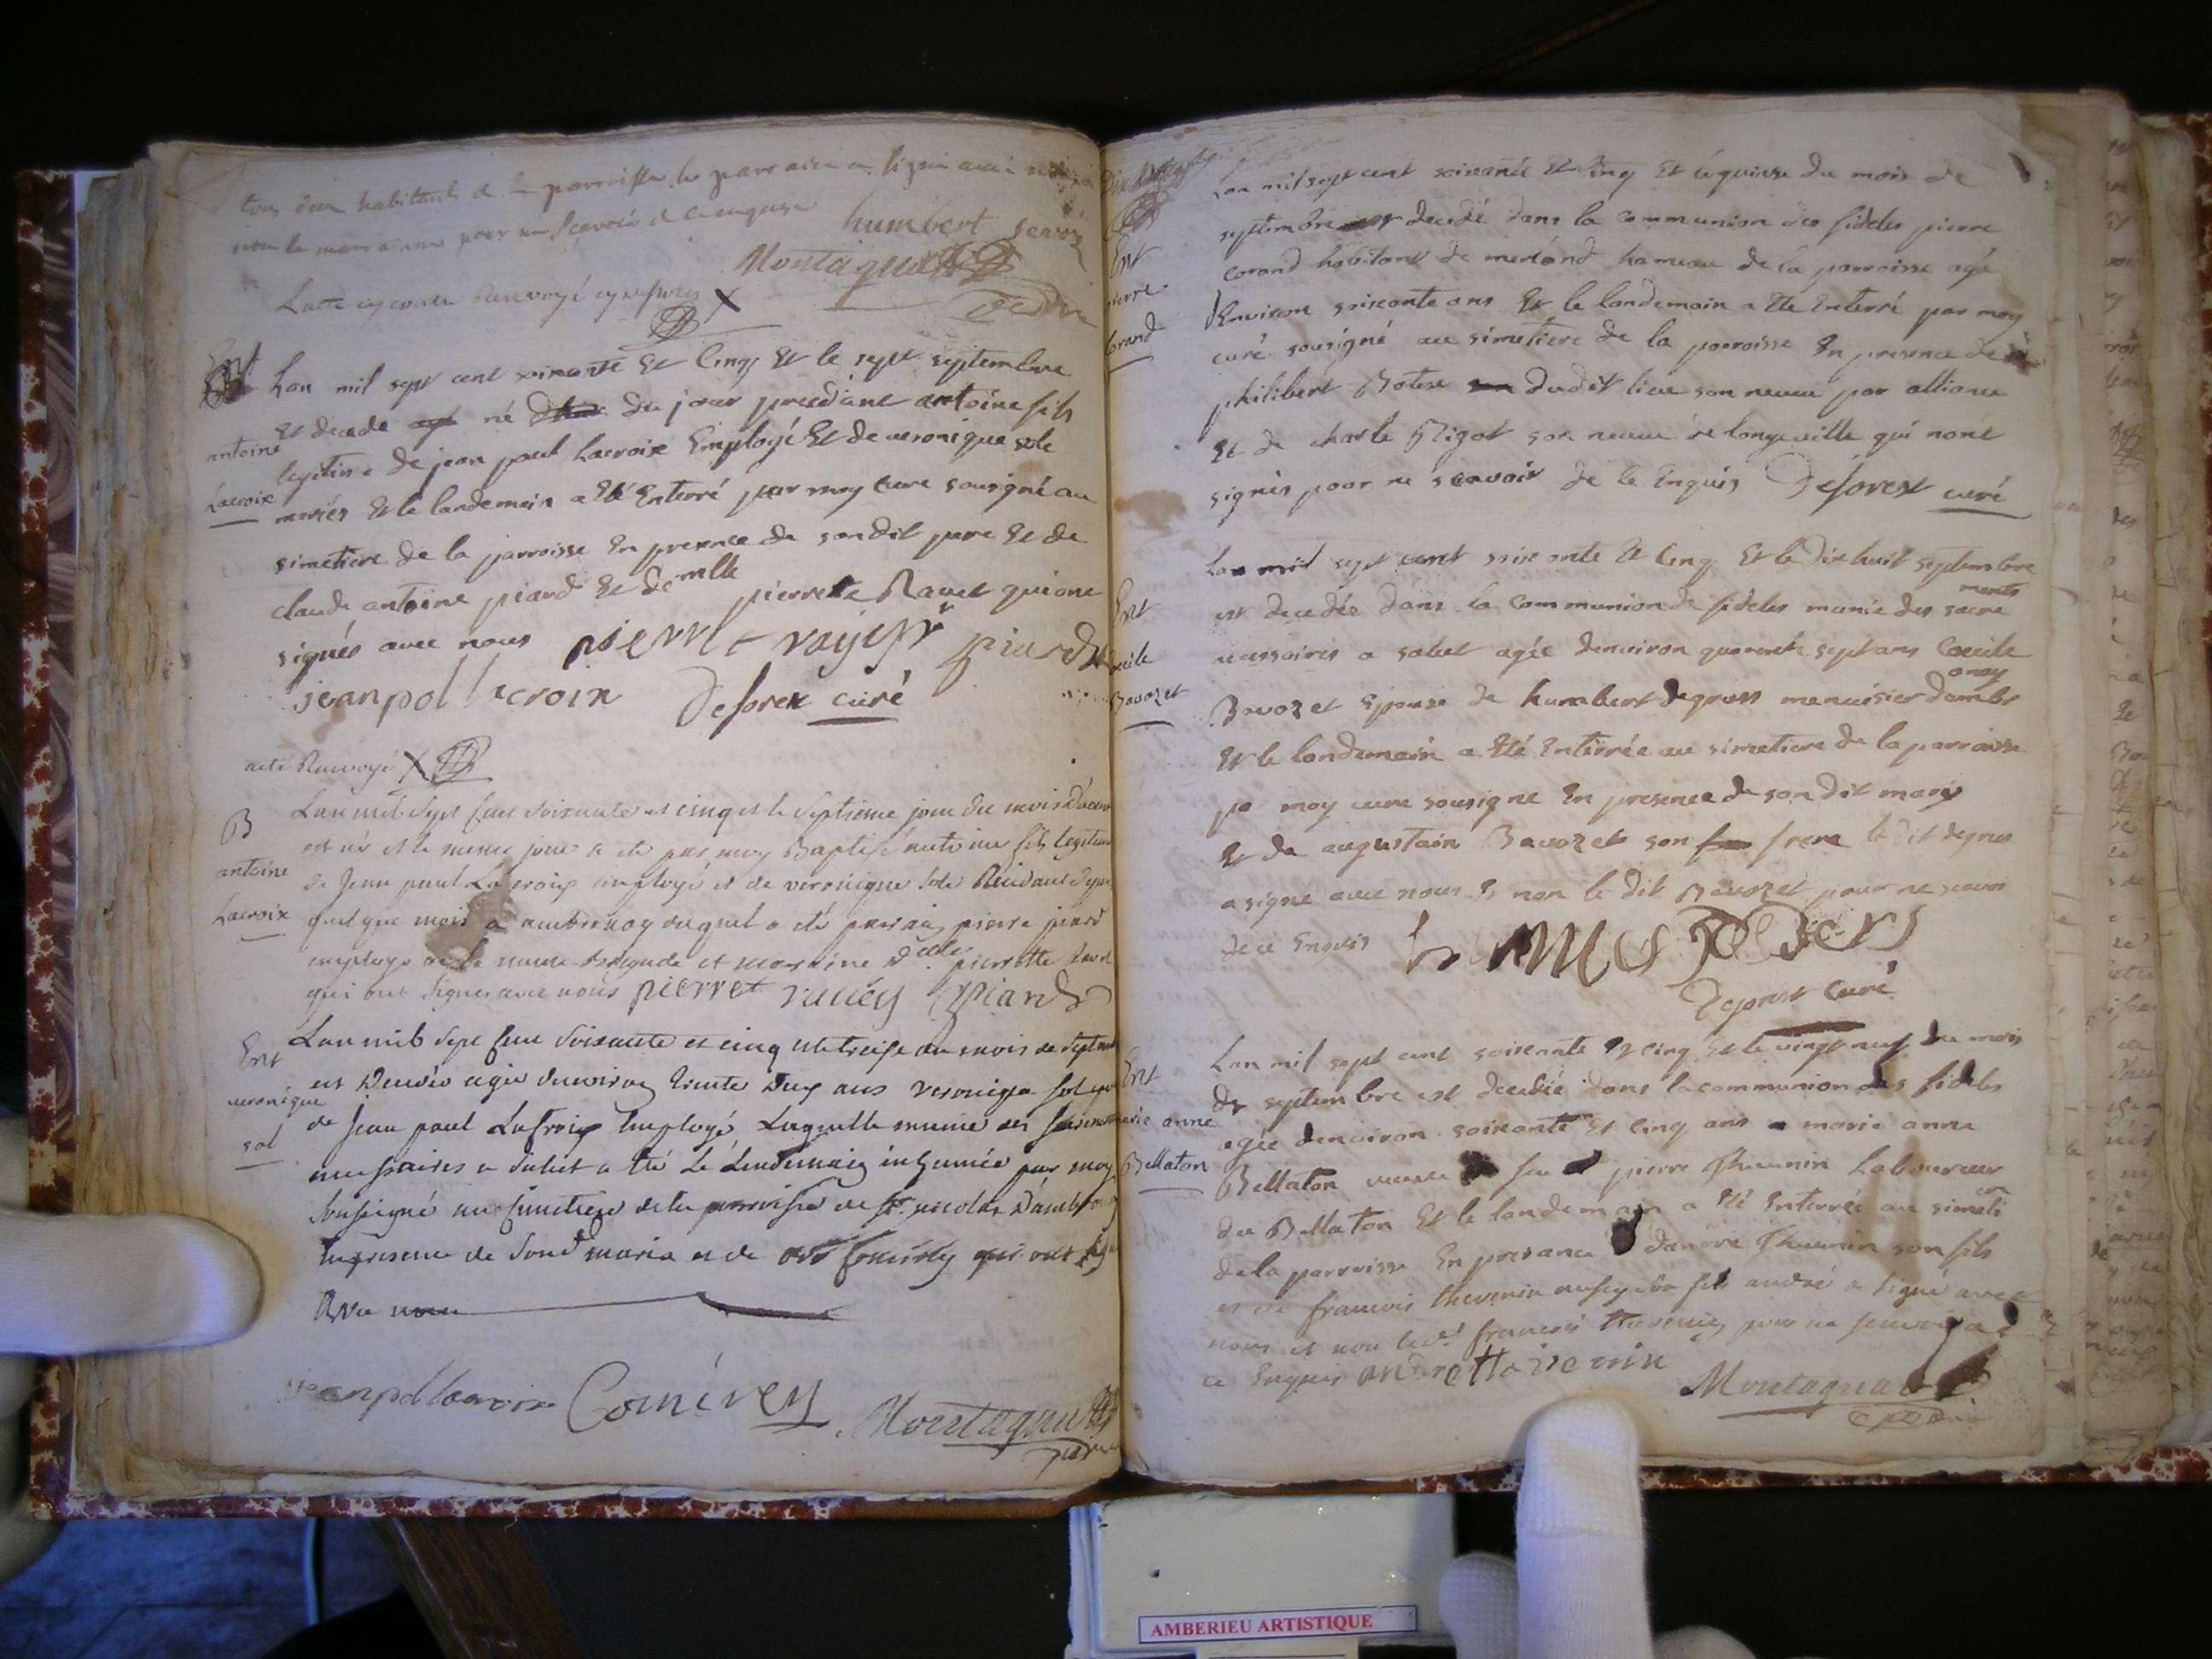 tous deux habitants de la parroisse le parrain a signé avec
non la marraine pour ne sçavoir de ce enquise
humbert servoz
Montagnat
Lacte cy contre Renvoyé cy X
Ent
antoine
Lacroix
Lan mil sept cent soixante Et Cinq Et le sept septembre
Et decede né du jour precedant antoine fils
legitime de jean paul Lacroix Employé Et de veronique sole
mariés Et le landemain a Eté Enterré par moy Cure sousigné au
simetiere de la parroisse En presence de son dit pere Et de
claude antoine piard Et de mlle pierrette Ravet qui ont
signés avec nous piard
jean pol lacroix Deforest curé
acte Renvoyé X
B
antoine
Lacroix
Lan mil Sept Cent Soixante et cinq et le Septieme jour du mois
est né et le meme jour a ete par moy Baptisé antoine fils legitime
de Jean paul La croix employé et de veronique Sole
quelque mois a ambronay auquel a eté parain pierre
employe de la meme Brigade et marraine Dlle pierrette
qui ont Signes avec nous pierret piard
Ent
veronique
sol
Lan mil Sept Cent Soixante et cinq et le treise du mois de Septembre
est Decedée agée denviron trente Deux ans veronique Sol
de Jean paul Lacroix Employé Laquelle munie des
necessaires a Salut a Eté Le Lendemain inhumée par moy
Soussigné au Cimetiere de la parroisse de St nicolas Dambronay
En presence de Sond maris et de qui ont
Avec nous
jean pol lacroix Montagnat
Ent
pierre
Corand
Lan mil sept cent soixante Et Cinq Et le quinse du mois de
septembre est decedé dans la Communion des fideles pierre
Corand habitant de merland hameau de la parroisse agé
Environ soixante ans Et le landemain a Ete Enterré par moy
curé sousigné au simetiere de la parroisse En presence de
philibert dudit lieu son neveu par alliance
Et de charle Rigot son neveu de longeville qui nont
signés pour ne scavoir de ce Enquis Deforest curé
Ent
Cecile
Bavozet
Lan mil sept cent soixante Et Cinq Et le dix huit septembre
est decedée dans la Communion de fideles munie des sacrements
necessaires a salut agée denviron quarente sept ans Cecile
Bavozet Epouse de humbert degruss menuisier dambronay
Et le landemain a Eté Enterrée au simetiere de la parroisse
par moy cure sousigne En presence de son dit mary
Et de augustain Bavozet son frere le dit
a signe avec nous Et non le dit Bavozet pour ne scavoir
de ce Enquis
Deforest Curé
Ent
Marie anne
Bellaton
Lan mil sept cent soixante Et cinq Et le vingt neuf du mois
de septembre est decedée dans la communion des fideles
agée denviron soixante Et Cinq ans marie anne
Bellaton veuve feu pierre Thevenin Laboureur
du Bellaton Et le landemain a Eté Enterrée au
de la parroisse En presance dandré Thevenin son fils
et de francois thevenin aussy son fils andré a signé avec
nous et non led francois thevenin pour ne
ce Enquis
Montagnat
AMBERIEU ARTISTIQUE